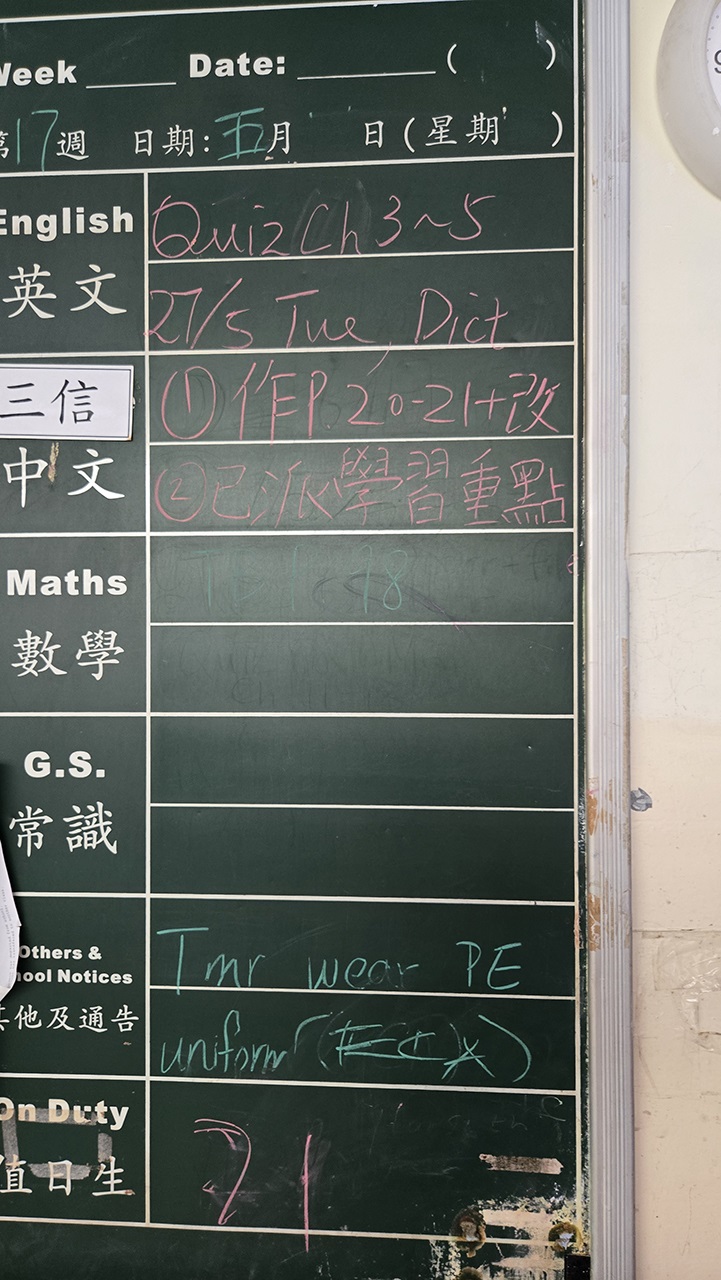 Week Date: ( )
第17週 日期:五月 日(星期 )
English Quiz Ch 3~5
英文 27/5 Tue, Dict
三信 ① 作P.20-21+改
中文 ②已派學習重點
Maths
數學
G.S.
常識
Others & Tmr wear PE
School Notices
其他及通告 uniform
On Duty 21
值日生